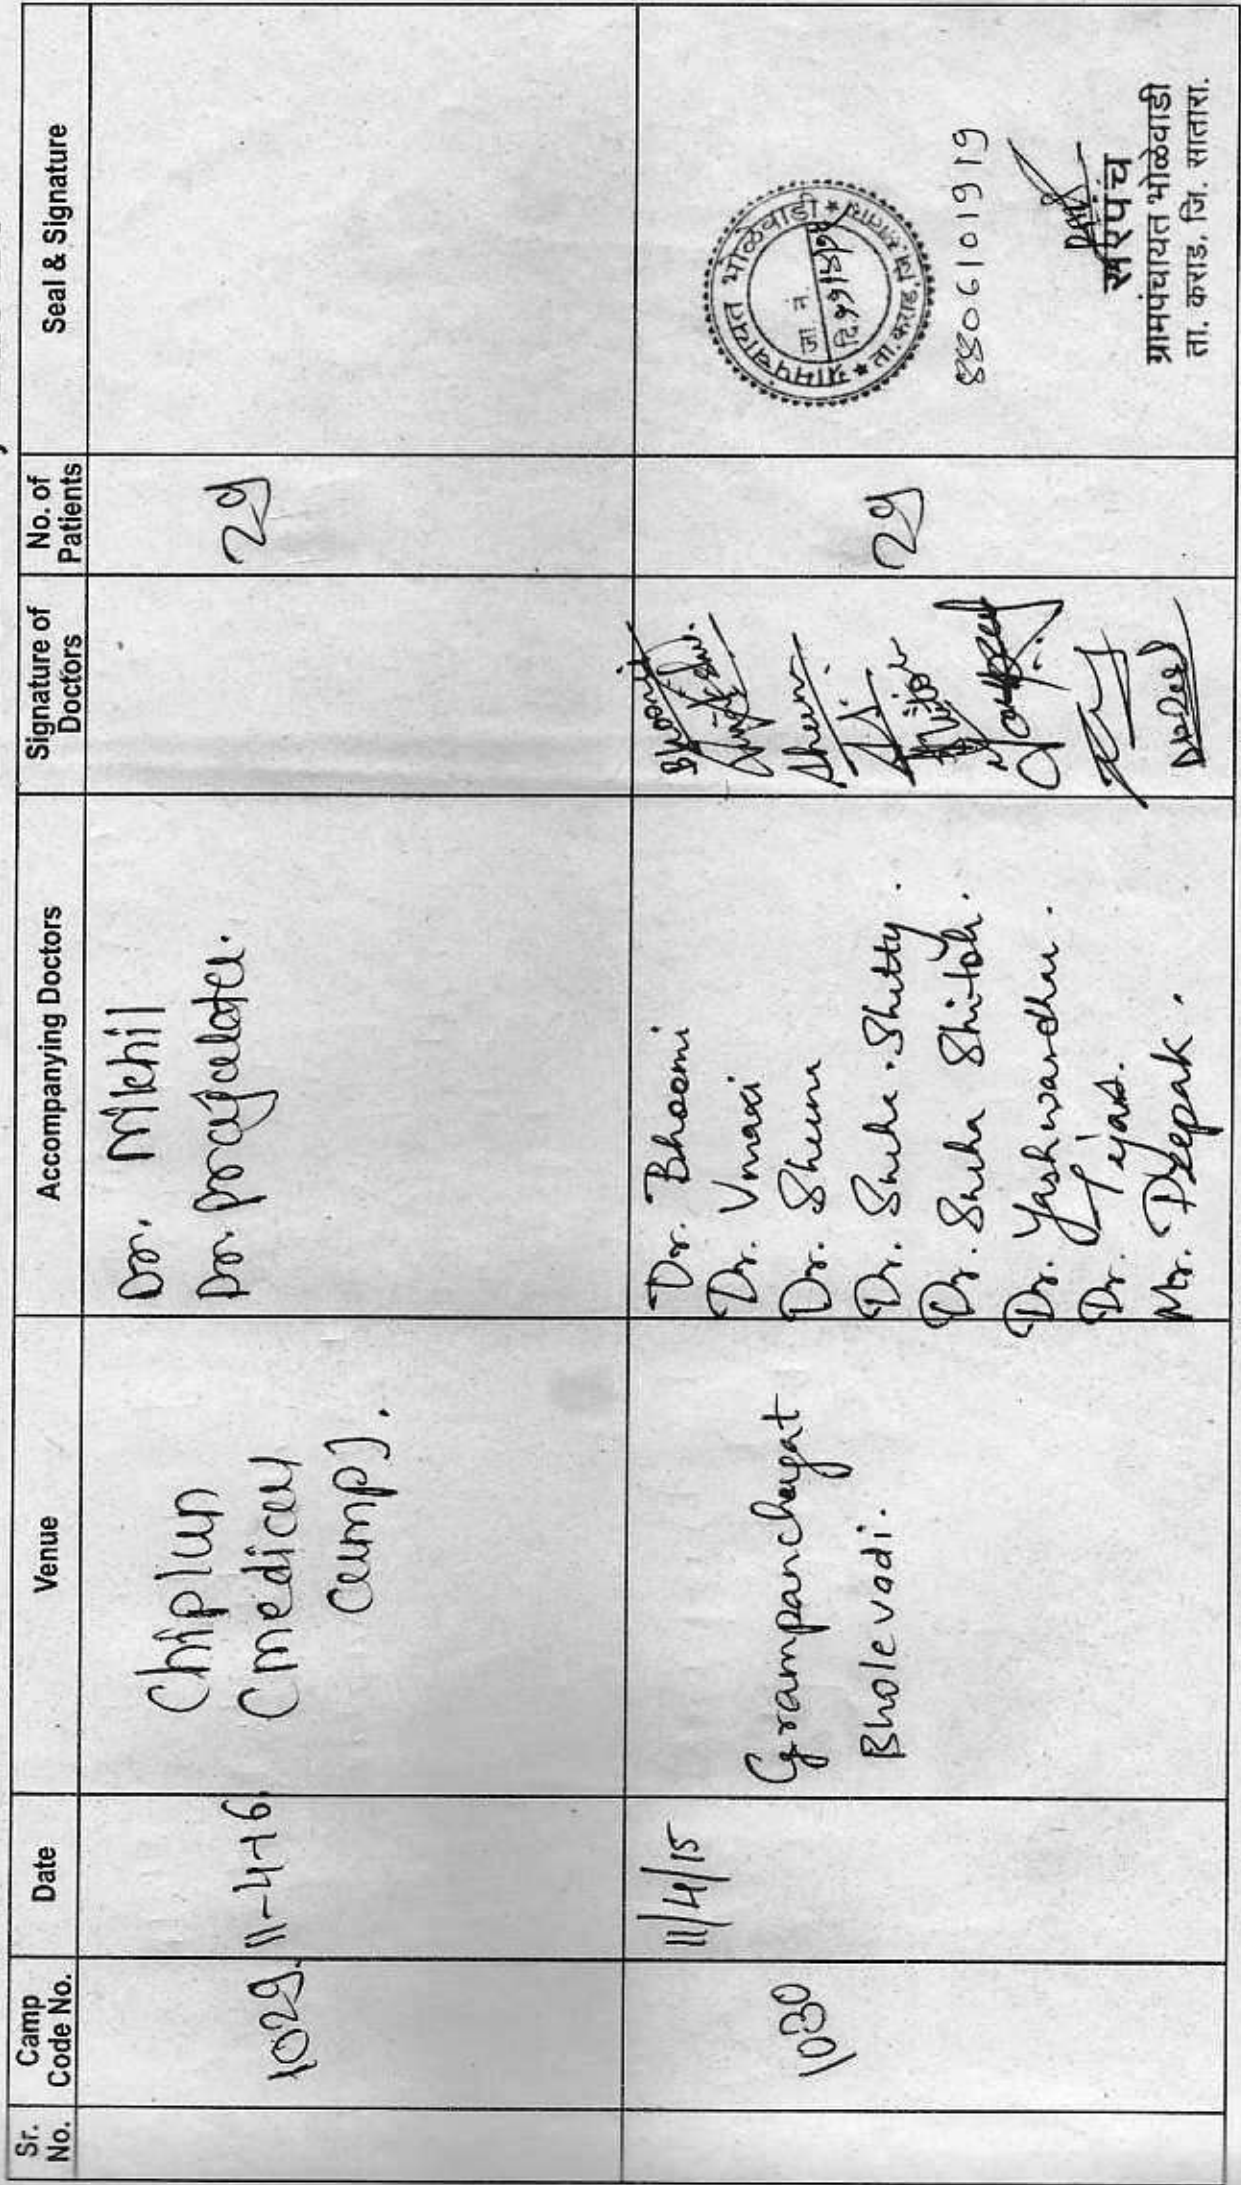 Sr. No.
Camp Code No.
Date
Venue
Accompanying Doctors
Signature of Doctors
No. of Patients
Seal & Signature
1029.
11-4-16
Chiplun
(medical
camp).
Dr. Nikhil
Dr. prajakta.
29
1030
11/4/15
Grampanchayat
Bholevadi.
Dr. Bhoomi
Dr. Vmaxi
Dr. Sheena
Dr. Sneha. Shetty.
Dr. Sneha Shitole.
Dr. Yashwardhan.
Dr. Tejas.
Mr. Deepak.
Bhoomi
Sheena
29
ग्रामपंचायत भोळेवाडी
जा. नं.
दि. ११/४/१५
ता. कराड, जि. सातारा
8806101919
सरपंच
ग्रामपंचायत भोळेवाडी
ता. कराड, जि. सातारा.